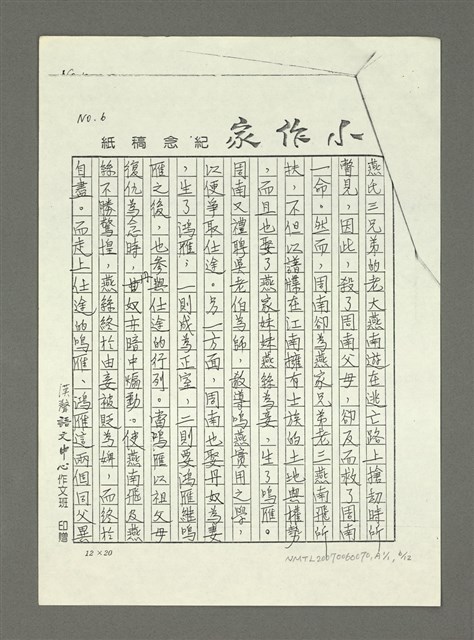 NO. 6
小作家 紀念稿紙
燕氏三兄弟的老大燕南遊在逃亡路上搶劫時所
瞥見,因此,殺了周南父母,卻反而救了周南
一命。然而,周南卻為燕家兄弟老三燕南飛所
扶,不但以譜牒在江南擁有士族的土地與權勢
,而且也娶了燕家妹妹燕絲為妾,生了鳴雁。
周南又禮聘渠老伯為師,教導鳴燕實用之學,
以便爭取仕途。另一方面,周南也娶丹奴為妻
,生了鴻雁;一則成為正室,二則要鴻雁繼鳴
雁之後,也參與仕途的行列。當鳴雁以祖父母
復仇為念時,丹奴亦暗中煽動。使燕南飛及燕
絲不勝驚惶,燕絲終於由妾被貶為婢,而終於
自盡。而走上仕途的鳴雁、鴻雁這兩個同父異
漢聲語文中心作文班 印贈
12×20
NMTL20070060070, A1/1, 6/12